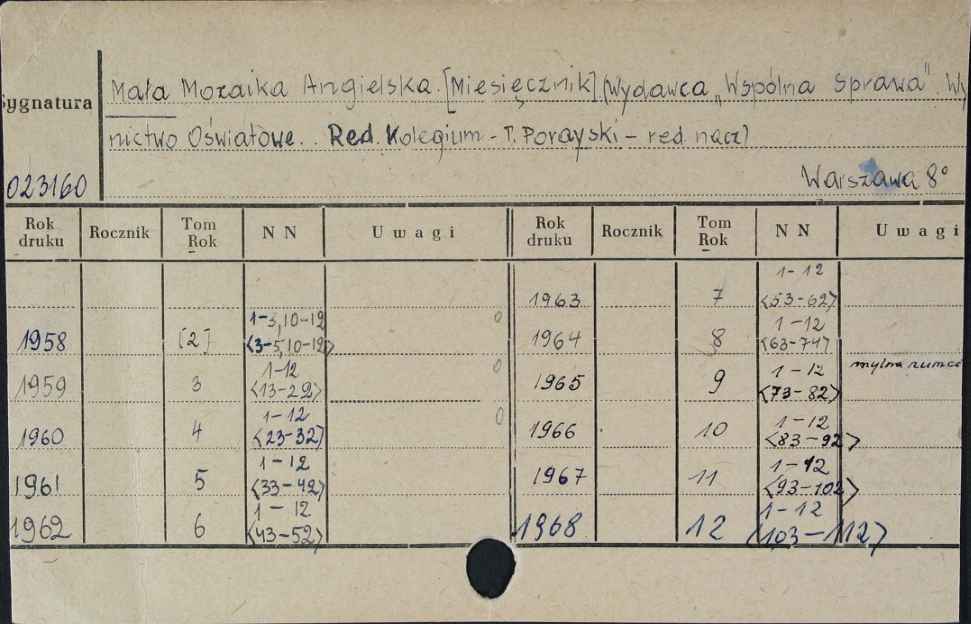 Mała Mozaika Angielska. [Miesięcznik]. (Wydawca "Wspólna Sprawa". Wy
Sygnatura
nictwo Oświatowe.. Red. Kolegium - T. Porayski - red. nacz)
023160
Warszawa 8°
Rok druku Rocznik Tom Rok NN Uwagi Rok druku Rocznik Tom Rok NN Uwagi
1963 7 1-12 <53-62>
1958 [2] 1-3,10-12 <3-5,10-12> 0 1964 8 1-12 <63-74>
1959 3 1-12 <13-22> 0 1965 9 1-12 <73-82> mylna
1960 4 1-12 <23-32> 0 1966 10 1-12 <83-92>
1961 5 1-12 <33-42> 1967 11 1-12 <93-102>
1962 6 1-12 <43-52> 1968 12 1-12 <103-112>